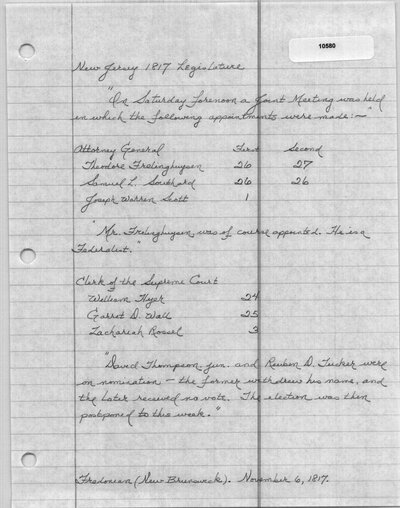 10580
New Jersey 1817 Legislature
"On Saturday forenoon a Joint Meeting was held
in which the following appointments were made:~
Attorney General First Second
Theodore Frelinghuysen 26 27
Samuel L. Southard 26 26
Joseph Warren Scott 1
"Mr. Frelinghuysen was of course appointed. He is a
Federalist."
Clerk of the Supreme Court
William Hyer 24
Garret D. Wall 25
Zachariah Rossel 3
"David Thompson, jun. and Reuben D. Tucker were
on nomination - the former withdrew his name, and
the later received no vote. The election was then
postponed to this week."
Fredonian (New Brunswick). November 6, 1817.